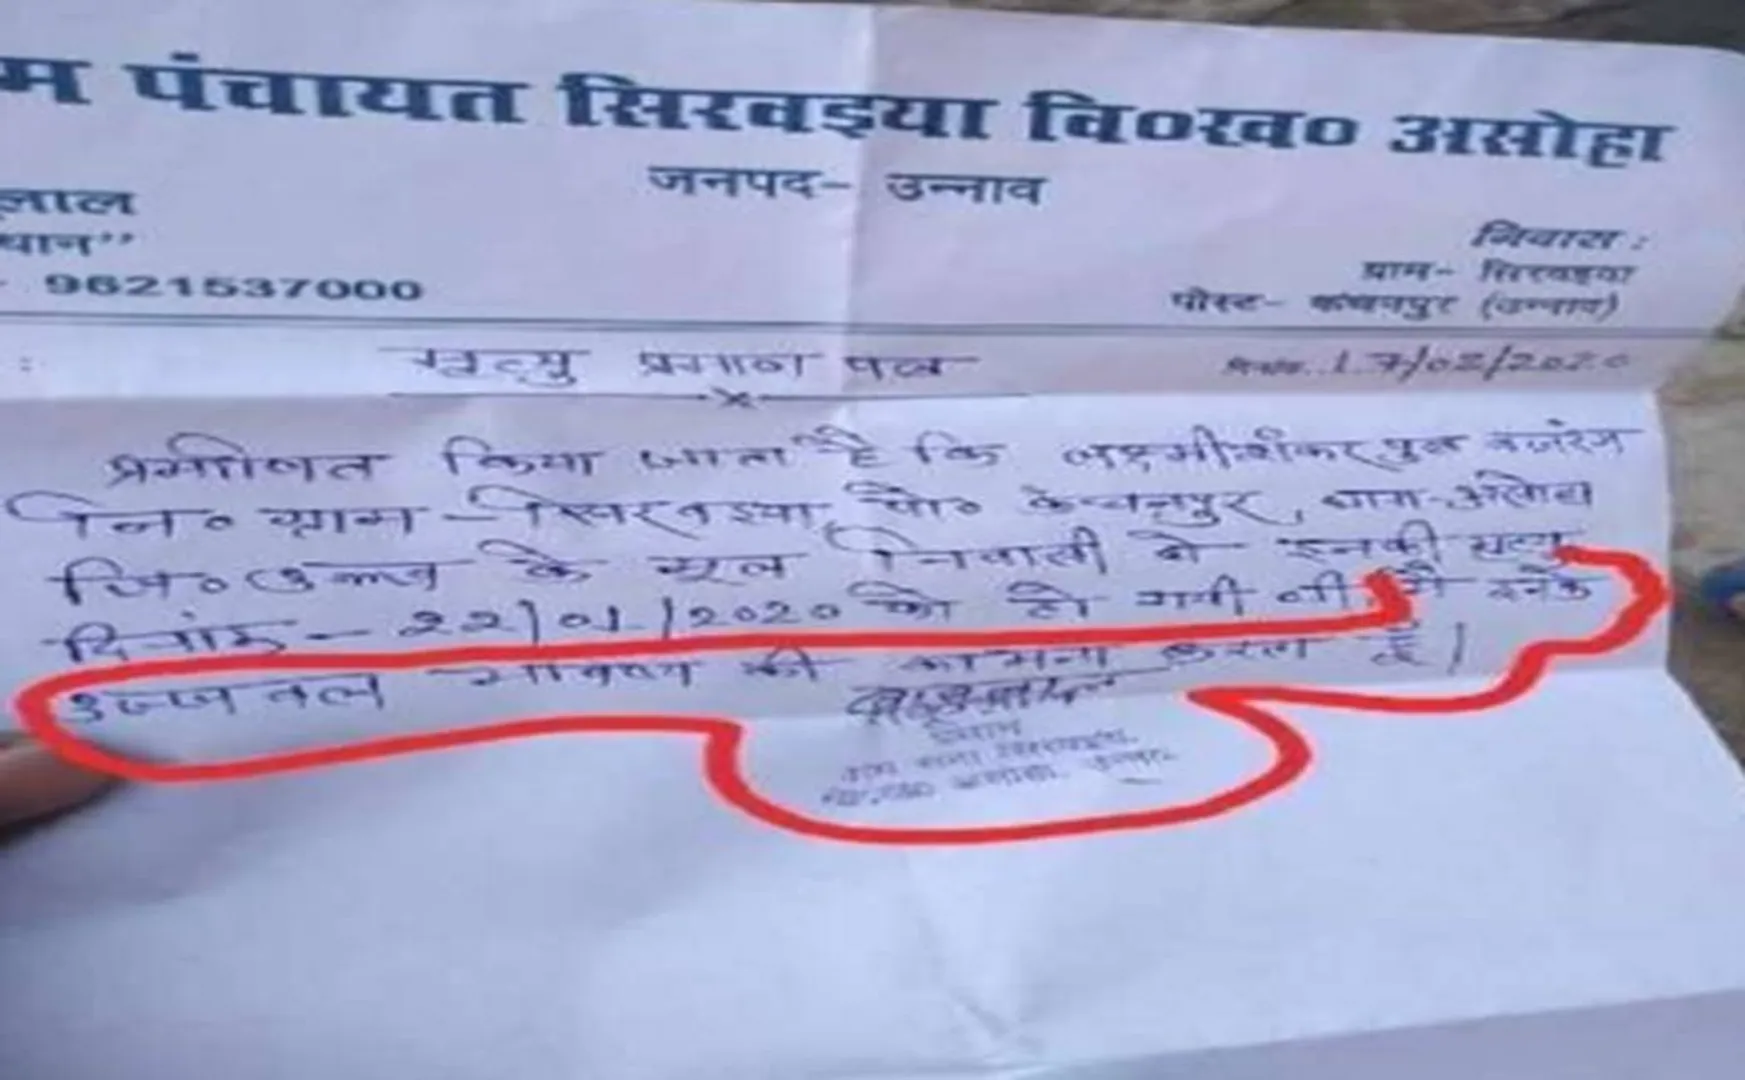 म पंचायत सिरवइया वि०ख० असोहा
जनपद- उन्नाव
लाल
धान”
निवास :
- 9621537000
ग्राम- सिरवइया
पोस्ट- कंचनपुर (उन्नाव)
: मृत्यु प्रमाण पत्र दिनांक..17/02/2020
प्रमाणित किया जाता है कि लक्ष्मीशंकर पुत्र बजरंग
नि० ग्राम - सिरवइया पो० कंचनपुर, थाना-असोहा
जि० उन्नाव के मूल निवासी थे इनकी मृत्यु
दिनांक - 22/01/2020 को हो गयी थी, मैं इनके
उज्जवल भविष्य की कामना करता हूँ।
प्रधान
ग्राम सभा सिरवइया
वि०ख० असोहा, उन्नाव